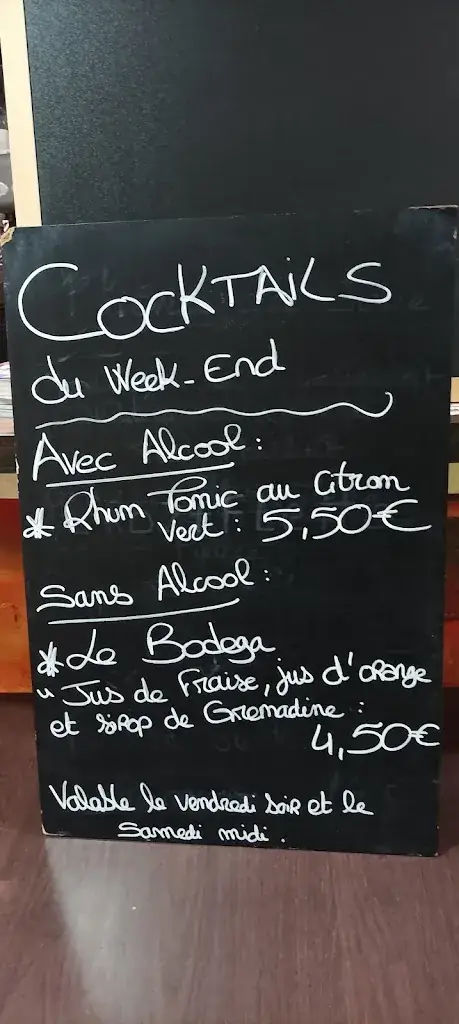 COCKTAILS
du Week-End
Avec Alcool :
* Rhum Tonic au Citron
Vert : 5,50€
Sans Alcool :
* Le Bodega
" Jus de Fraise, jus d'orange
et sirop de Grenadine :
4,50€
Valable le vendredi soir et le
Samedi midi.